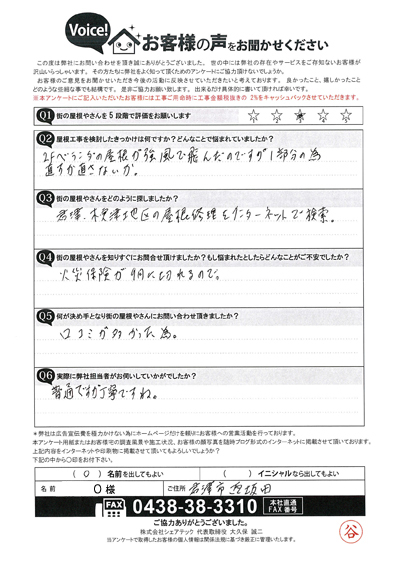 Voice!
お客様の声をお聞かせください
この度は弊社にお問い合わせを頂き誠にありがとうございました。世の中には弊社の存在やサービスをご存知ないお客様が
沢山いらっしゃいます。その方たちに弊社をよく知って頂くためのアンケートにご協力頂けないでしょうか。
お客様のご意見をお聞かせいただき今後の活動に反映させていただきたいと考えております。良かったこと、嬉しかったこと
どのような些細な事でも結構です。是非ご協力お願い致します。出来るだけ具体的に書いて頂ければ幸いです。
※本アンケートにご記入いただいたお客様には工事ご用命時に工事金額税抜きの 2%をキャッシュバックさせていただきます。
Q1 街の屋根やさんを5段階で評価をお願いします ☆ ☆ ★ ☆ ☆
Q2 屋根工事を検討したきっかけは何ですか?どんなことで悩まれていましたか?
2Fベランダの屋根が強風で飛んだのですが1部分の為
直すか直さないか。
Q3 街の屋根やさんをどのように探しましたか?
君津、木更津地区の屋根修理をインターネットで検索。
Q4 街の屋根やさんを知りすぐにお問合せ頂けましたか?もし悩まれたとしたらどんなことがご不安でしたか?
火災保険が4月に切れるので。
Q5 何が決め手となり街の屋根やさんにお問い合わせ頂きましたか?
口コミが多かった為。
Q6 実際に弊社担当者がお伺いしていかがでしたか?
普通ですが丁寧ですね。
＊弊社は広告宣伝費を極力かけない為にホームページだけを頼りにお客様への営業活動を行っております。
本アンケート用紙またはお客様宅の調査風景や施工状況、お客様の顔写真を随時ブログ形式のインターネットに掲載させて頂いております。
上記内容をインターネットや印刷物に掲載させて頂いてもよろしいでしょうか?
下記の中から〇印をお付け下さい。
( O ) 名前を出してもよい ( ) イニシャルなら出してもよい
名前 O 様 ご住所 君津市西坂田
FAX 0438-38-3310 本社直通 FAX 番号
ご協力ありがとうございました。
株式会社シェアテック 代表取締役 大久保 誠二
当アンケートで取得したお客様の個人情報は関係法規に基づき厳正に管理いたします。
谷